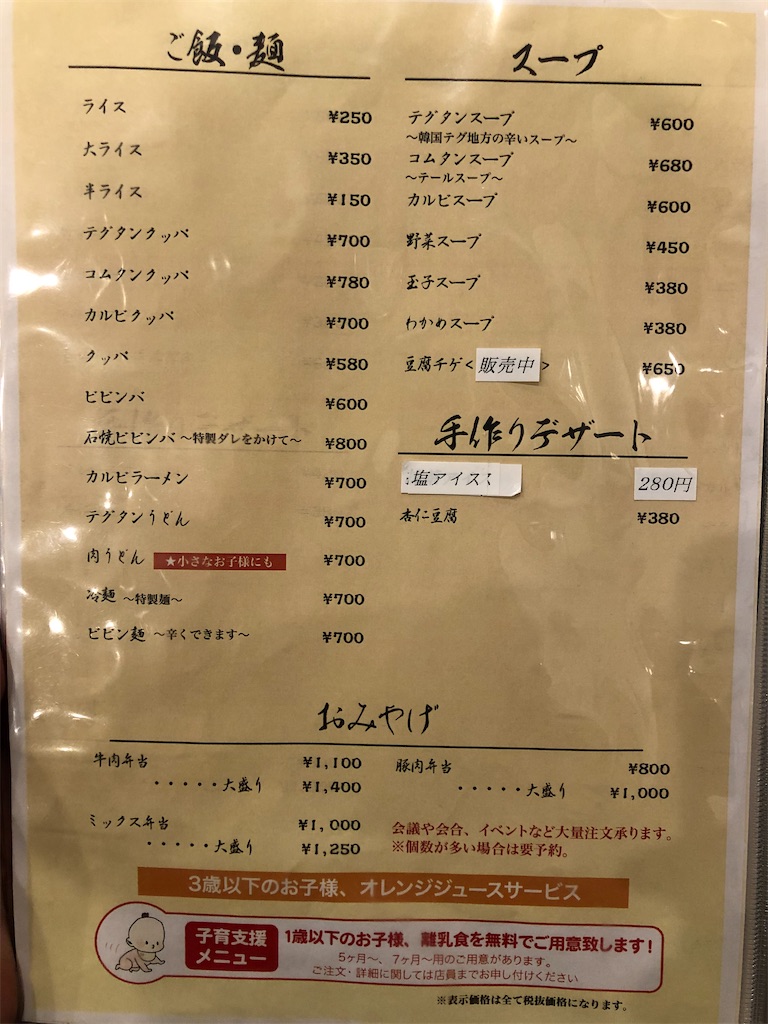 ご飯・麺
ライス ¥250
大ライス ¥350
半ライス ¥150
テグタンクッパ ¥700
コムタンクッパ ¥780
カルビクッパ ¥700
クッパ ¥580
ビビンバ ¥600
石焼ビビンバ ～特製ダレをかけて～ ¥800
カルビラーメン ¥700
テグタンうどん ¥700
肉うどん ★小さなお子様にも ¥700
冷麺 ～特製麺～ ¥700
ビビン麺 ～辛くできます～ ¥700
スープ
テグタンスープ ¥600
～韓国テグ地方の辛いスープ～
コムタンスープ ¥680
～テールスープ～
カルビスープ ¥600
野菜スープ ¥450
玉子スープ ¥380
わかめスープ ¥380
豆腐チゲ<販売中> ¥650
手作りデザート
塩アイス 280円
杏仁豆腐 ¥380
おみやげ
牛肉弁当 ¥1,100
・・・・・大盛り ¥1,400
ミックス弁当 ¥1,000
・・・・・大盛り ¥1,250
豚肉弁当 ¥800
・・・・・大盛り ¥1,000
会議や会合、イベントなど大量注文承ります。
※個数が多い場合は要予約。
3歳以下のお子様、オレンジジュースサービス
子育支援
メニュー
1歳以下のお子様、離乳食を無料でご用意致します!
5ヶ月～、7ヶ月～用のご用意があります。
ご注文・詳細に関しては店員までお申し付けください
※表示価格は全て税抜価格になります。